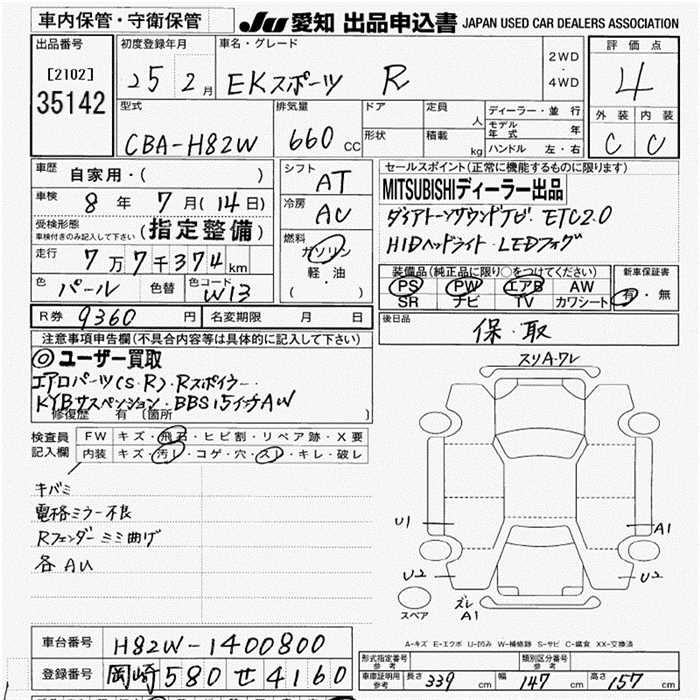 車内保管・守衛保管
JU 愛知 出品申込書 JAPAN USED CAR DEALERS ASSOCIATION
出品番号
[2102]
35142
初度登録年月
25 2月
車名・グレード
EKスポーツ R
2WD
・
4WD
評価点
4
外装 内装
C C
型式
CBA-H82W
排気量
660 CC
ドア
形状
定員 人
積載 kg
ディーラー・並行
モデル年式 年
ハンドル 左・右
車歴
自家用・( )
車検
8年 7月(14日)
受検形態
車検付きのみ記入して下さい
(指定整備)
走行
7万7千374km
色
パール
色替
色コード
W13
シフト
AT
冷房
AC
燃料
ガソリン
軽・油
( )
セールスポイント(正常に機能するものに限ります)
MITSUBISHIディーラー出品
ダイアトーンサウンドナビ・ETC2.0
HIDヘッドライト・LEDフォグ
装備品(純正品に限り○をつけてください)
PS PW エアB AW
SR ナビ TV カワシート
新車保証書
有・無
R券 9360円
名変期限 月 日
後日品
保・取
注意事項申告欄(不具合内容等は具体的に記入して下さい)
◎ユーザー買取
エアロパーツ(S・R)・Rスポイラー・
KYBサスペンション・BBS15インチAW
修復歴 有〔箇所 〕
検査員
記入欄
FW キズ・飛石・ヒビ割・リペア跡・X要
内装 キズ・汚レ・コゲ・穴・スレ・キレ・破レ
キバミ
電格ミラー不良
Rフェンダーミミ曲げ
各AU
スリA・ワレ
U1
A1
U2
U2
スペア
ズレ
A1
A-キズ E-エクボ U-凹み W-補修跡 S-サビ C-腐食 XX-交換済
車台番号
H82W-1400800
登録番号
岡崎580せ4160
形式指定番号
参考
類別区分番号
参考
車検証明用
参考
長さ 339cm
幅 147cm
高さ 157cm